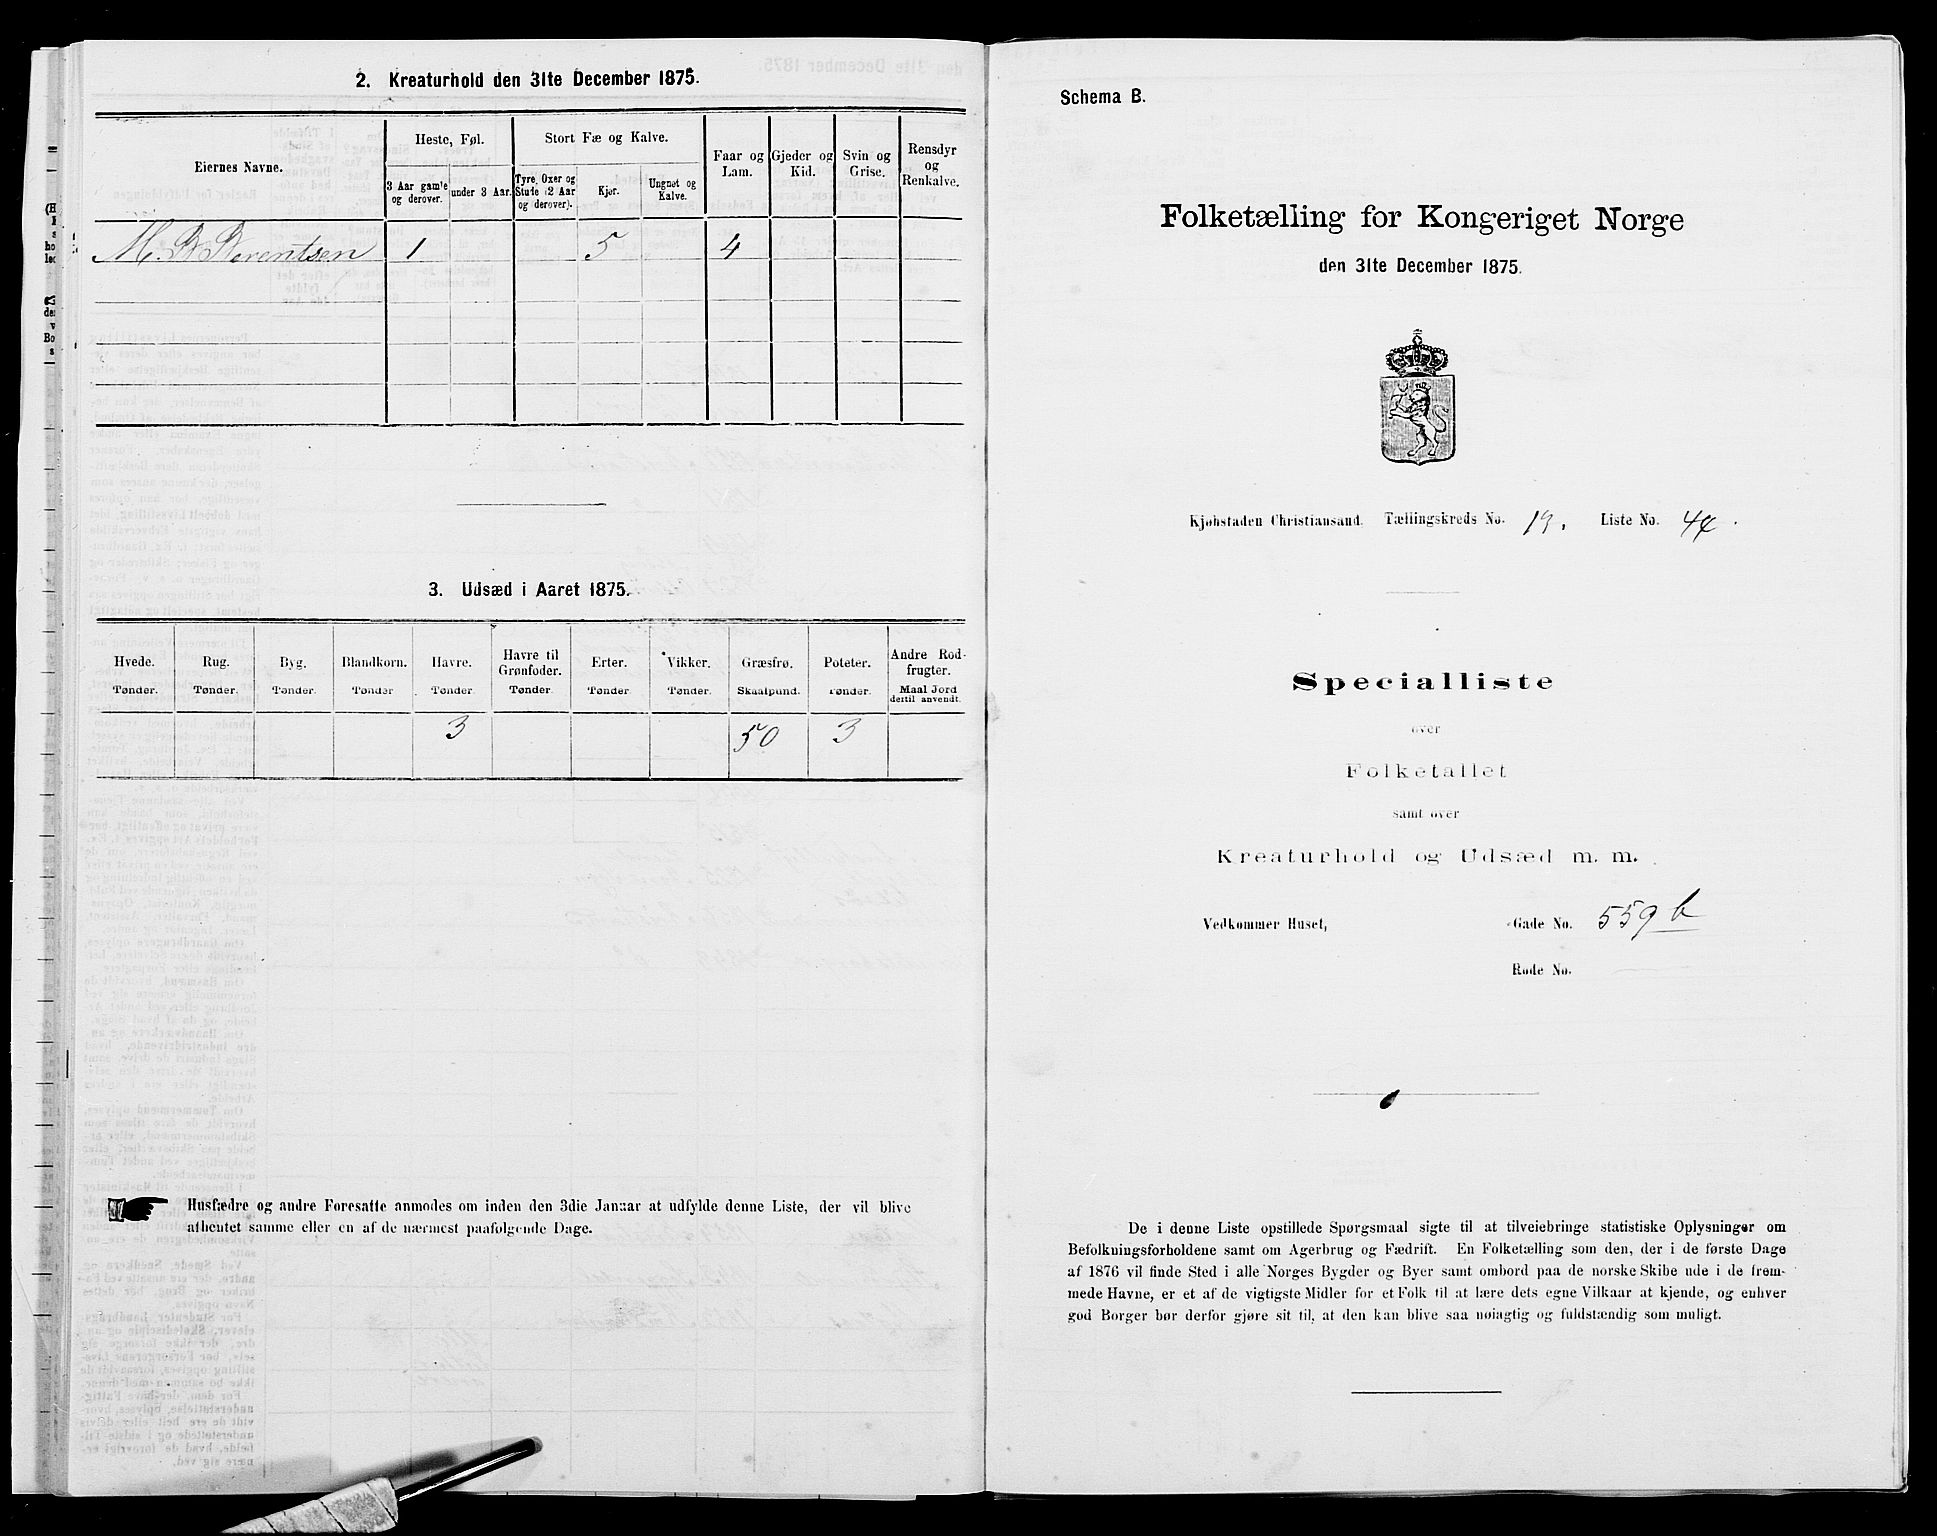 2. Kreaturhold den 31te December 1875.
Eiernes Navne.
Heste, Føl.
Stort Fæ og Kalve.
Faar og Lam.
Gjeder og Kid.
Svin og Grise.
Rensdyr og Renkalve.
3 Aar gamle og derover.
under 3 Aar.
Tyre, Oxer og Stude (2 Aar og derover).
Kjør.
Ungnøt og Kalve.
M. B. Berentsen 1 5 4
3. Udsæd i Aaret 1875.
Hvede. Tønder.
Rug. Tønder.
Byg. Tønder.
Blandkorn. Tønder
Havre. Tønder.
Havre til Grønfoder. Tønder.
Erter. Tønder.
Vikker. Tønder.
Græsfrø. Skaalpund.
Poteter. Tønder.
Andre Rodfrugter. Maal Jord dertil anvendt.
3 50 3
Husfædre og andre Foresatte anmodes om inden den 3die Januar at udfylde denne Liste, der vil blive
afhentet samme eller en af de nærmest paafølgende Dage.
Schema B.
Folketælling for Kongeriget Norge
den 31te December 1875.
Kjøbstaden Christiansand. Tællingskreds No. 13. Liste No. 44.
Specialliste
over
Folketallet
samt over
Kreaturhold og Udsæd m. m.
Vedkommer Huset, Gade No. 559 b
Rode No.
De i denne Liste opstillede Spørgsmaal sigte til at tilveiebringe statistiske Oplysninger om
Befolkningsforholdene samt om Agerbrug og Fædrift. En Folketælling som den, der i de første Dage
af 1876 vil finde Sted i alle Norges Bygder og Byer samt ombord paa de norske Skibe ude i de frem-
mede Havne, er et af de vigtigste Midler for et Folk til at lære dets egne Vilkaar at kjende, og enhver
god Borger bør derfor gjøre sit til, at den kan blive saa nøiagtig og fuldstændig som muligt.